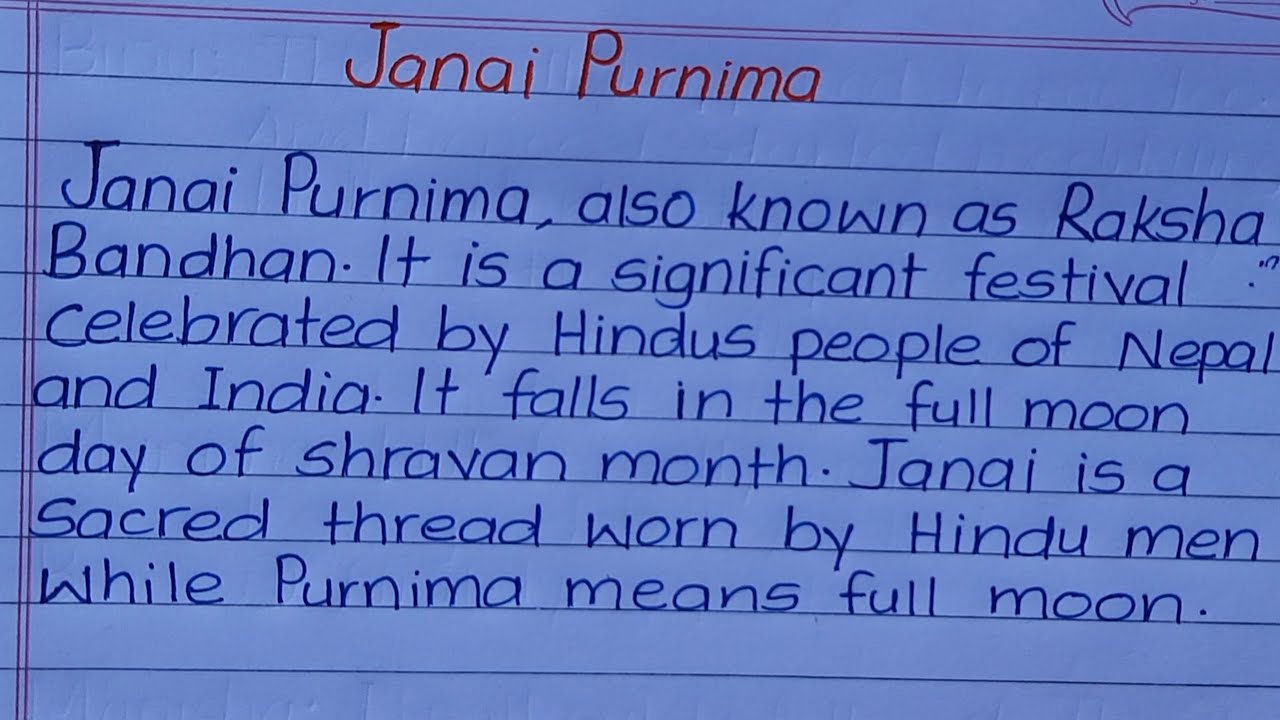 Janai Purnima
Janai Purnima, also known as Raksha
Bandhan. It is a significant festival
celebrated by Hindus people of Nepal
and India. It falls in the full moon
day of shravan month. Janai is a
sacred thread worn by Hindu men
while Purnima means full moon.